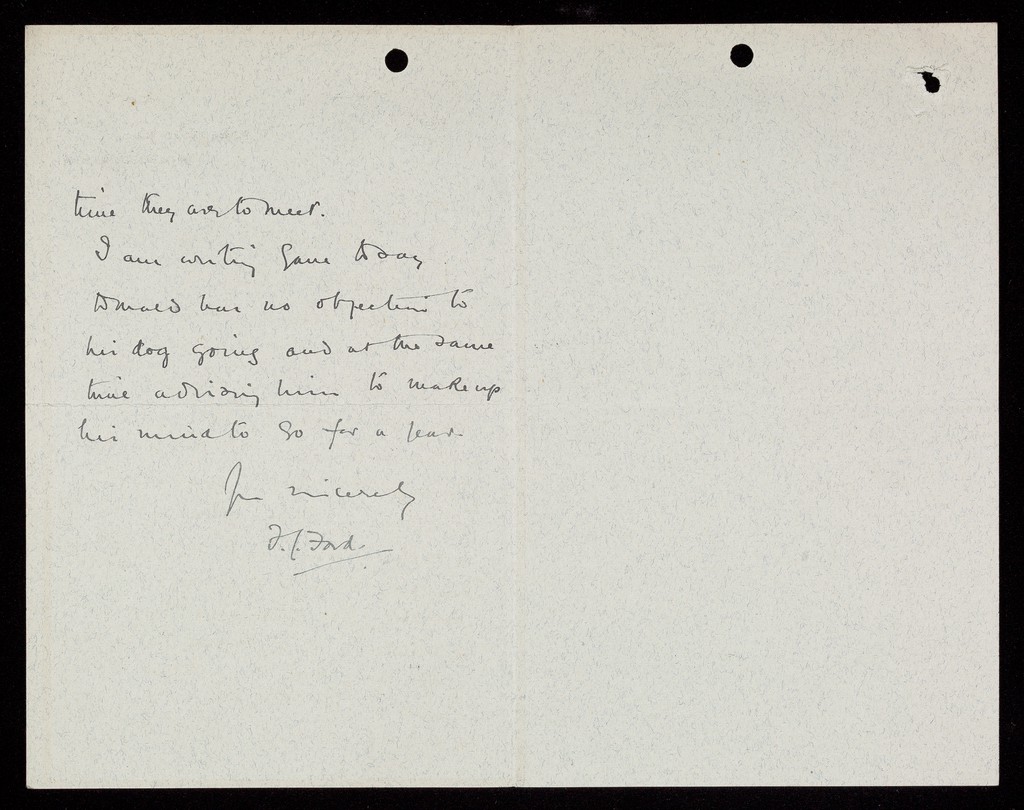 time they are to meet.
I am writing Gane today
Donald has no objection to
his dog going and at the same
time advising him to make up
his mind to go for a year.
sincerely
Ford.